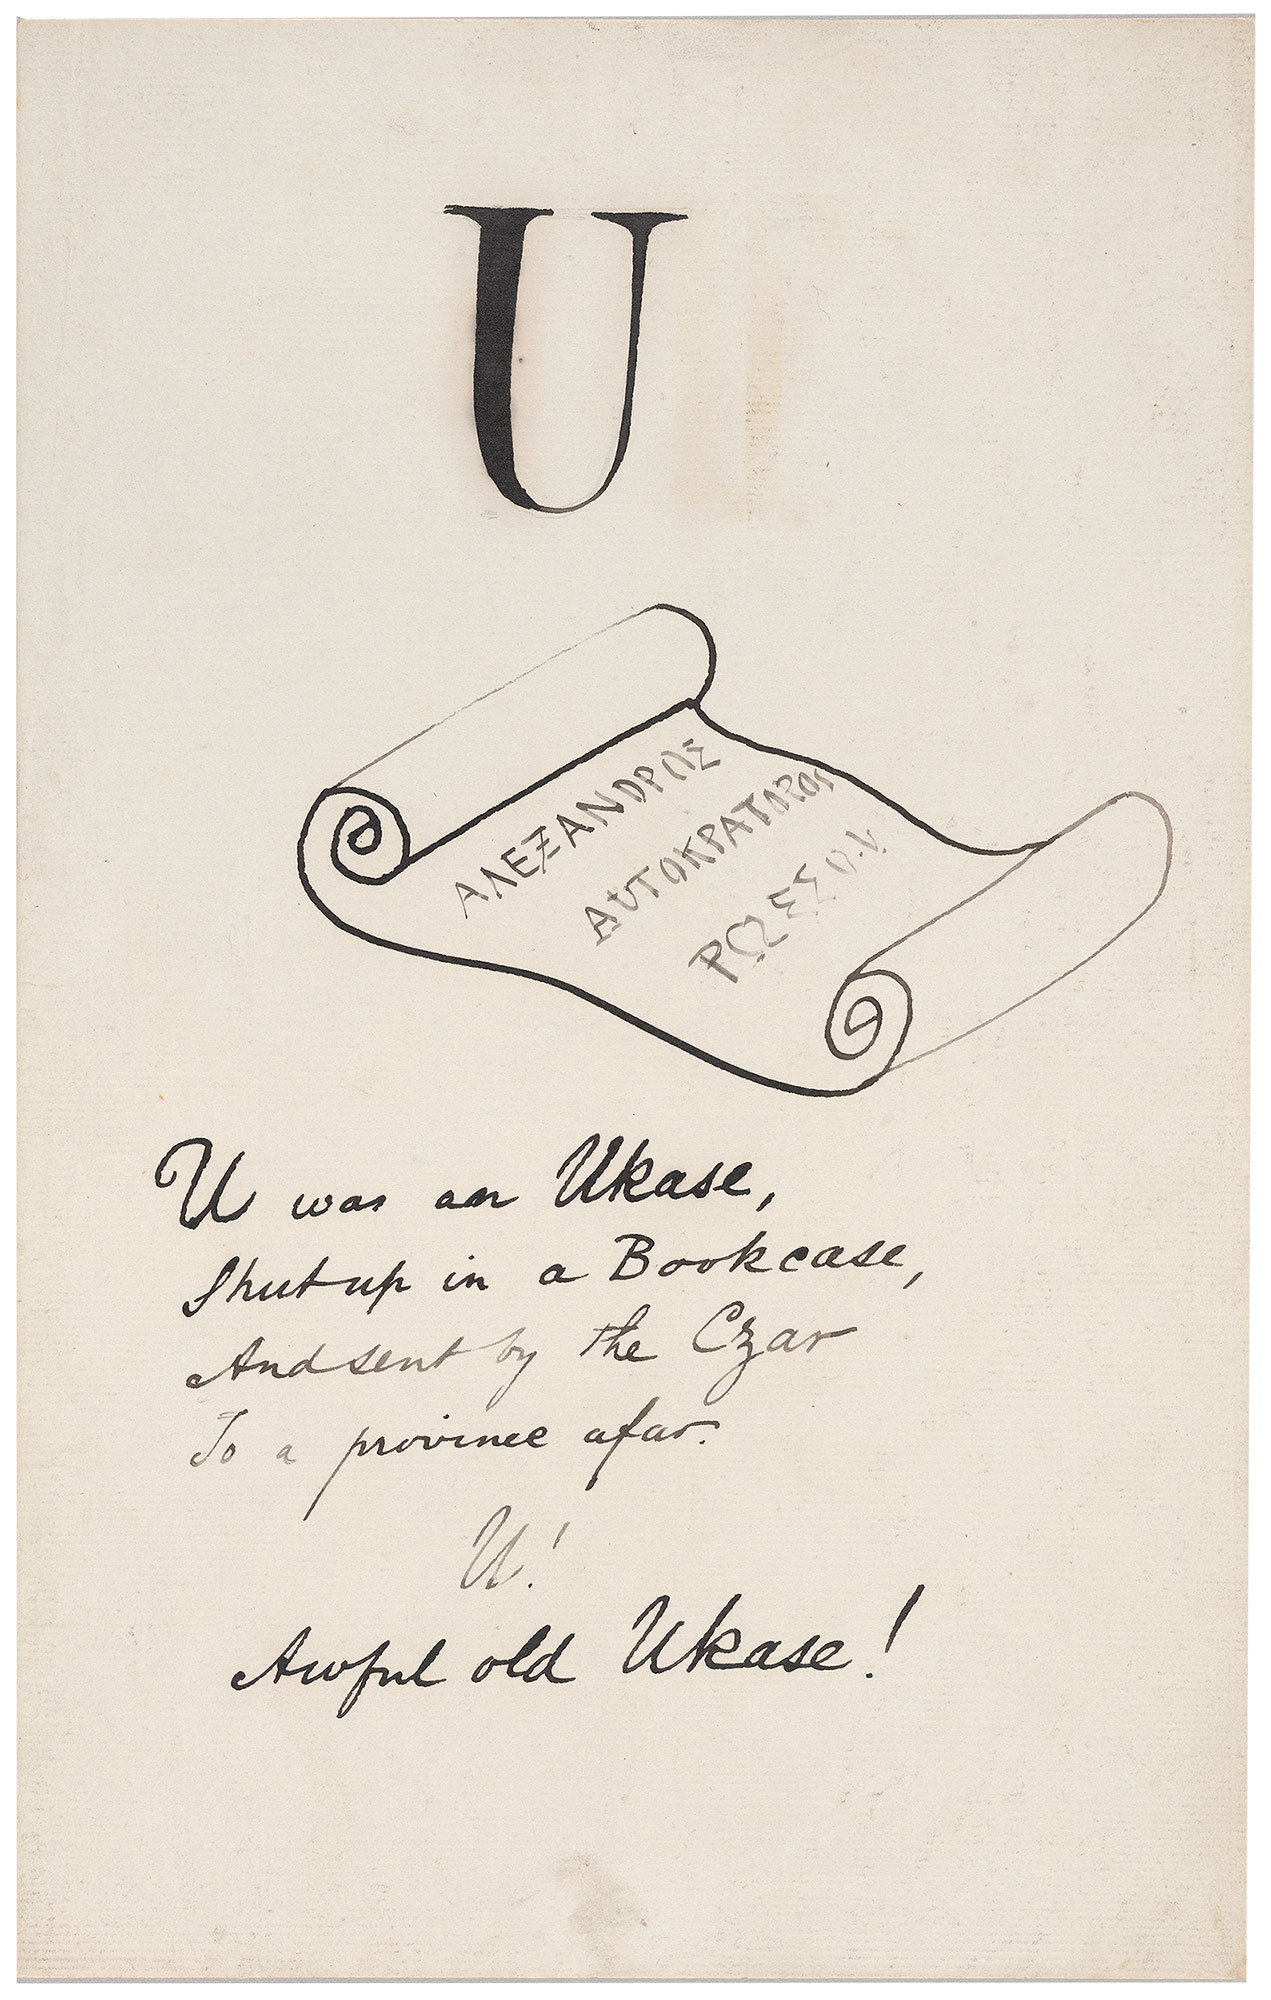 U
ΑΛΕΞΑΝDΡΩΣ
ΑUΤΟΚΡΑΤΟRΟS
ΡΩΣΣΟ.V.
U was an Ukase,
Shut up in a Bookcase,
And sent by the Czar
To a province afar.
U!
Awful old Ukase!